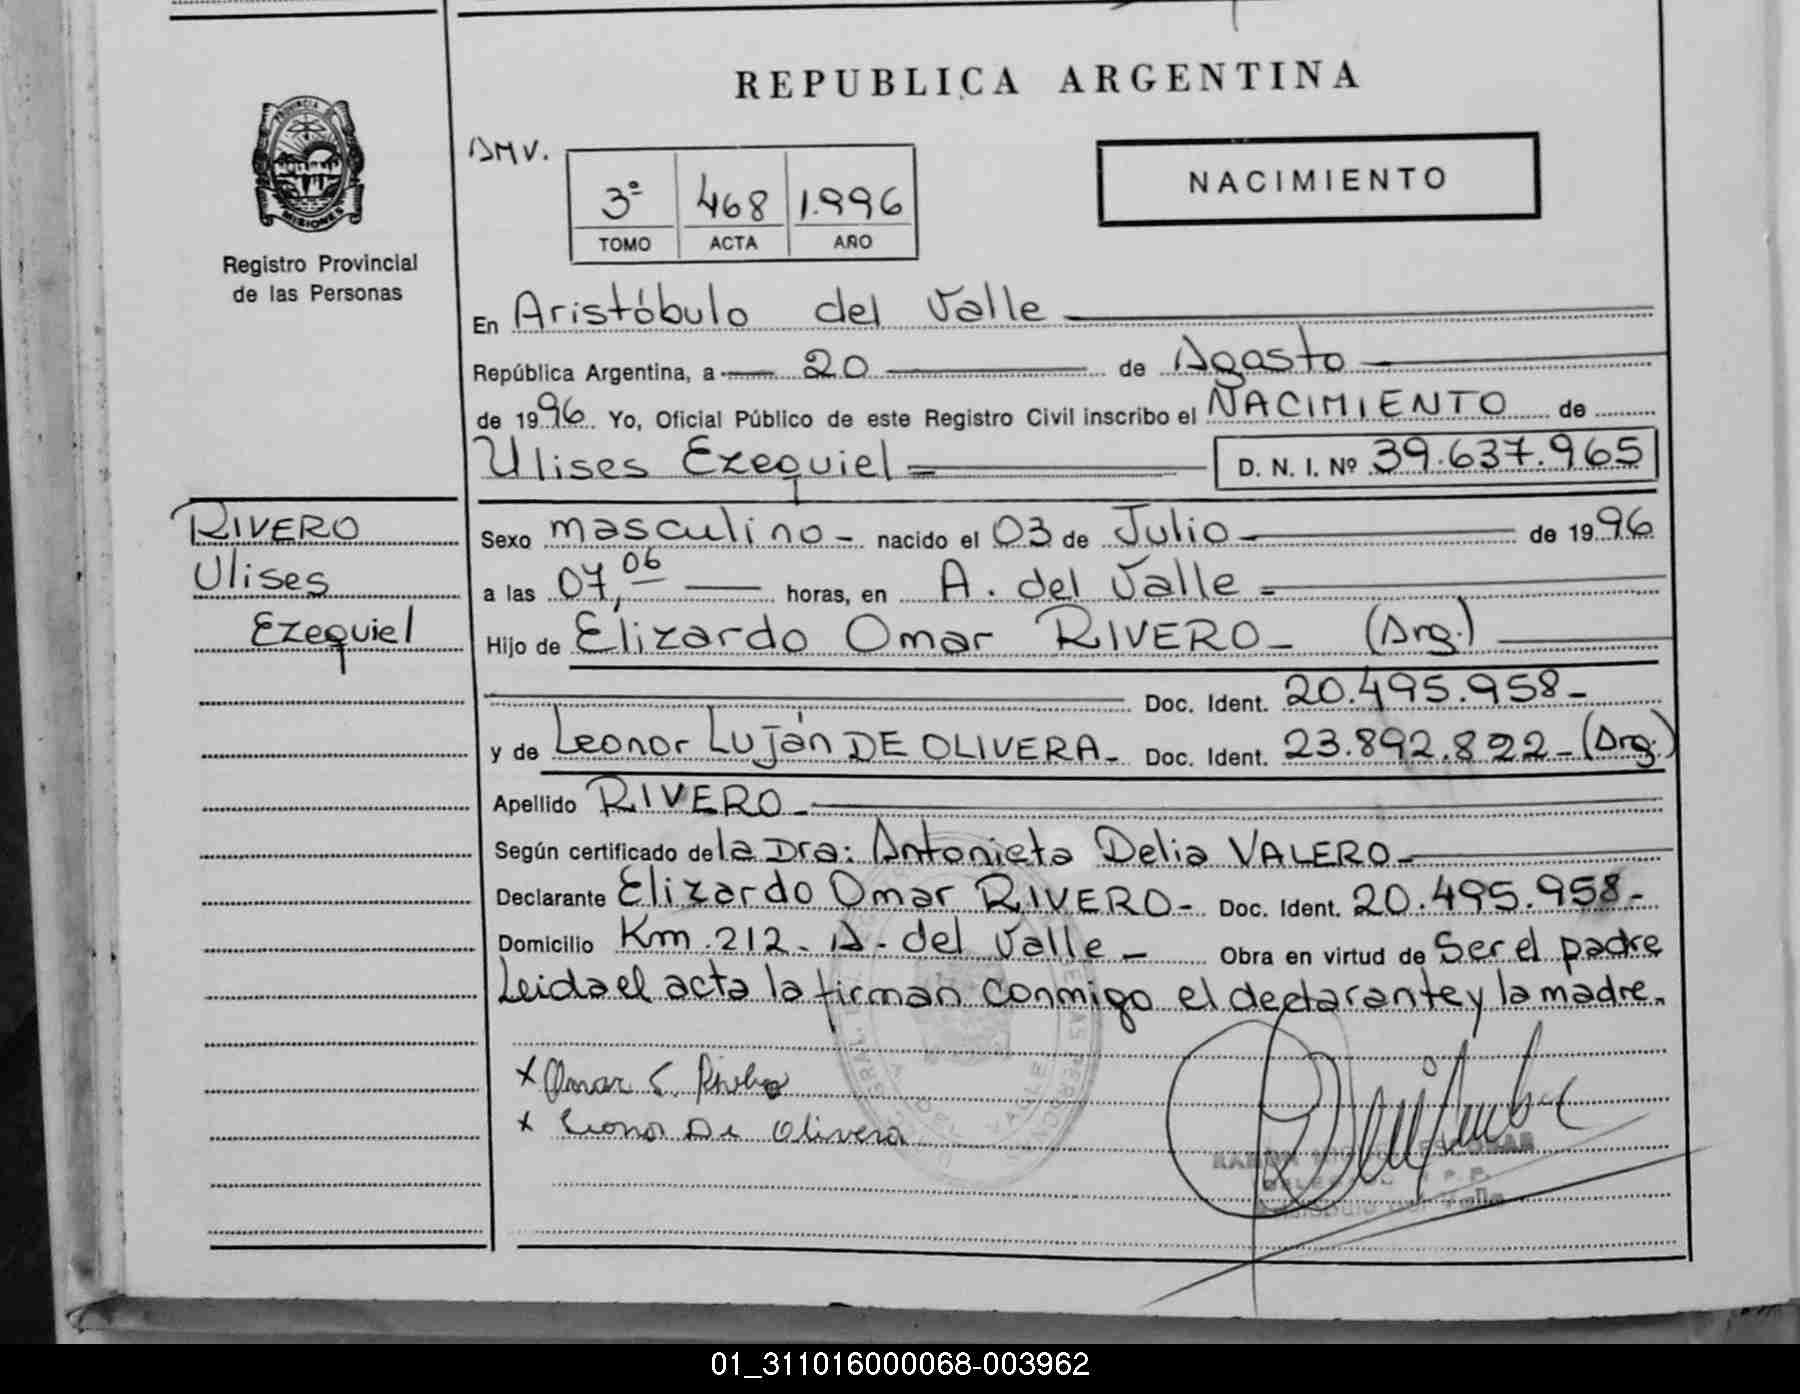 REPUBLICA ARGENTINA
PROVINCIA DE
MISIONES
Registro Provincial
de las Personas
DMV.
3º 468 1.996
TOMO ACTA AÑO
NACIMIENTO
En Aristóbulo del Valle
República Argentina, a 20 de Agosto
de 1996. Yo, Oficial Público de este Registro Civil inscribo el NACIMIENTO de
Ulises Ezequiel D. N. I. Nº 39.637.965
RIVERO
Ulises
Ezequiel
Sexo masculino - nacido el 03 de Julio de 1996
a las 07,06 horas, en A. del Valle
Hijo de Elizardo Omar RIVERO - (Arg.)
Doc. Ident. 20.495.958-
y de Leonor Luján DE OLIVERA - Doc. Ident. 23.892.822-(Arg.)
Apellido RIVERO-
Según certificado de la Dra: Antonieta Delia VALERO-
Declarante Elizardo Omar RIVERO- Doc. Ident. 20.495.958-
Domicilio Km. 212- A- del Valle - Obra en virtud de Ser el padre
Leida el acta la firman conmigo el declarante y la madre.
x Omar E. Rivero
x Leonor De Olivera
ESCOBAR
Aristóbulo del Valle
01_311016000068-003962